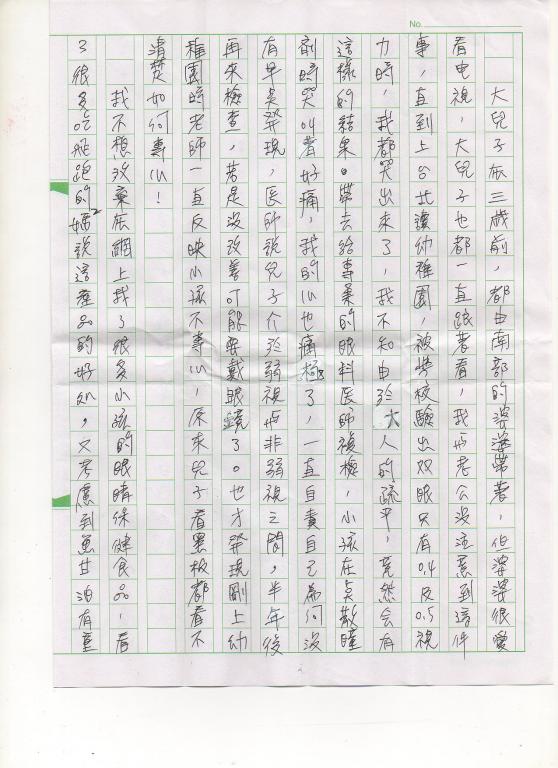 No.
大兒子在三歲前，都由南部的婆婆帶著，但婆婆很愛
看电視，大兒子也都一直跟著看，我与老公沒注意到這件
事，直到上台北讀幼稚園，被學校驗出双眼只有0.4及0.5視
力時，我都哭出來了，我不知由於大人的疏乎，竟然会有
這樣的結果。帶去給專業的眼科医師複檢，小孩在点散瞳
劑時哭叫著好痛，我的心也痛極了，一直自責自己為何沒
有早点發現，医師說兒子介於弱視与非弱視之間，半年後
再來檢查，若是沒改善可能要戴眼鏡了。也才發現剛上幼
稚園時老師一直反映小孩不專心，原來兒子看黑板都看不
清楚如何專心！
我不想放棄在網上找了很多小孩的眼睛保健食品，看
了很多吃飛距的媽2說這產品的好処，又考慮到魚甘油有重